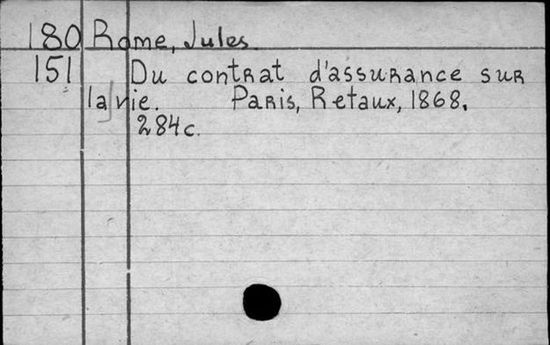 180 Rome, Jules
151 Du contrat d'assurance sur
la vie. Paris, Retaux, 1868.
284c.